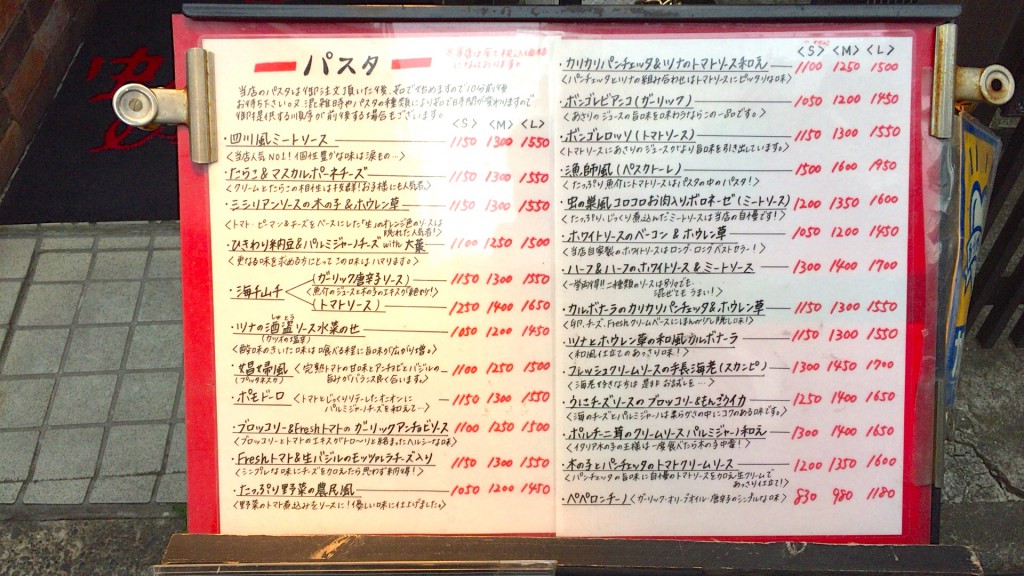 パスタ
当店のパスタは御注文頂いた後、茹で始めますので10分前後
お待ち下さい。又混雑時やパスタの種類により茹で時間が変わりますので
御提供する順序が前後する場合もございます。
<S> <M> <L>
・四川風ミートソース 1150 1300 1550
<当店人気NO1!個性豊かな味は涙もの…>
・たらこ&マスカルポーネチーズ 1150 1300 1550
<クリームとたらこの相性は抜群!お子様にも人気者>
・シシリアンソースの木の子&ホウレン草 1150 1300 1550
<トマト・ピーマン&チーズをベースにした「生」のオレンジ色のソースは
隠れた人気者!>
・ひきわり納豆&パルミジャーノチーズ with 大葉 1100 1250 1500
<更なる味を求める方にとってこの味はハマります。>
・海千山千
(ガーリック唐辛子ソース) 1150 1300 1550
<魚介のジュースと木の子のエキスが絶妙り!>
(トマトソース) 1250 1400 1650
・ツナの酒盗ソース水菜のせ 1050 1200 1450
しゅとう
(カツオの塩辛)
<酸味のきいた味は喰べる程に旨味が広がり増。>
・娼婦風 <完熟トマトの甘味とアンチョビとバジルの 1100 1250 1500
(プッタネスカ) 旨みがバランス良く合います。>
・ポモドーロ <トマトとじっくりソテーしたオニオンに 1150 1300 1550
パルミジャーノチーズを和えて…>
・ブロッコリー&Freshトマトのガーリックアンチョビソース 1100 1250 1500
<ブロッコリーとトマトのエキスがトロ〜リと絡まったヘルシーな味>
・Freshトマト&生バジルのモッツァレラチーズ入り 1150 1300 1550
<シンプルな味にチーズを加えたら思わず納得!>
・たっぷり野菜の農民風 1050 1200 1450
<野菜のトマト煮込みをソースに!優しい味に仕上げました。>
<S> <M> <L>
・カリカリパンチェッタ&ツナのトマトソース和え 1100 1250 1500
<パンチェッタとツナの組み合わせはトマトソースにピッタリな味>
・ボンゴレビアンコ(ガーリック) 1050 1200 1450
<あさりのジュースの旨味を味わうならこの一品です。>
・ボンゴレロッソ(トマトソース) 1150 1300 1550
<トマトソースにあさりのジュースがより旨味を引き出しています。>
・漁師風(ペスカトーレ) 1500 1600 1950
<たっぷり魚介にトマトソースはパスタの中のパスタ!>
・虫の巣風コロコロお肉入りボロネーゼ(ミートソース) 1200 1350 1600
<たっぷり、じっくり煮込んだミートソースは当店の自慢です!>
・ホワイトソースのベーコン&ホウレン草 1050 1200 1450
<当店自家製のホワイトソースはロング・ロングベストセラー!>
・ハーフ&ハーフのホワイトソース&ミートソース 1300 1400 1700
<一挙両得!!二種類のソースは別々でも
混ぜてもうまい!>
・カルボナーラのカリカリパンチェッタ&ホウレン草 1150 1300 1550
<卵、チーズ、Freshクリームベースにほんのり隠し味!>
・ツナとホウレン草の和風カルボナーラ 1150 1300 1550
<和風仕立てのあっさり味!>
・フレッシュクリームソースの手長海老(スカンピ) 1300 1450 1700
<海老好きな方は是非お試しを…>
・うにチーズソースのブロッコリー&もんごうイカ 1250 1400 1650
<海のチーズとパルミジャーノは柔らかさの中にコクのある味です。>
・ポルチーニ茸のクリームソースパルミジャーノ和え 1300 1400 1650
<イタリア木の子の王様は一度食べたら木の子中毒!>
・木の子とパンチェッタのトマトクリームソース 1200 1350 1600
<パンチェッタの旨味に自慢のトマトソースを加え生クリームで
あっさり仕立て!>
・ペペロンチーノ <ガーリック・オリーブオイル・唐辛子のシンプルな味> 830 980 1180